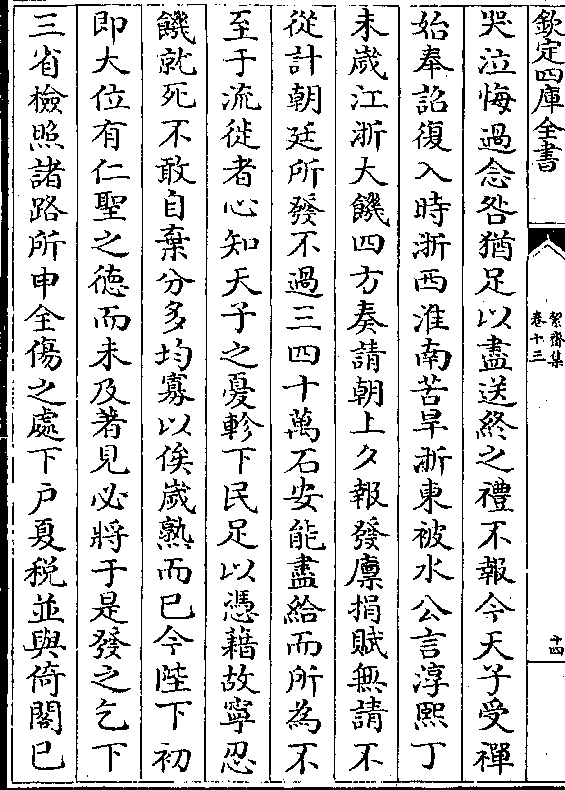 欽定四庫全書
絜齋集
卷十三
十四
哭泣悔過念咎猶足以盡送終之禮不報今天子受禪
始奉詔復入時浙西淮南苦旱浙東被水公言淳熙丁
未歲江浙大饑四方奏請朝上夕報發廪捐賦無請不
從計朝廷所發不過三四十萬石安能盡給而所為不
至于流徙者心知天子之憂軫下民足以憑藉故寧忍
饑就死不敢自棄分多均寡以俟歲熟而已今陛下初
即大位有仁聖之德而未及著見必將于是發之乞下
三省檢照諸路所申全傷之處下户夏税並與倚閣已